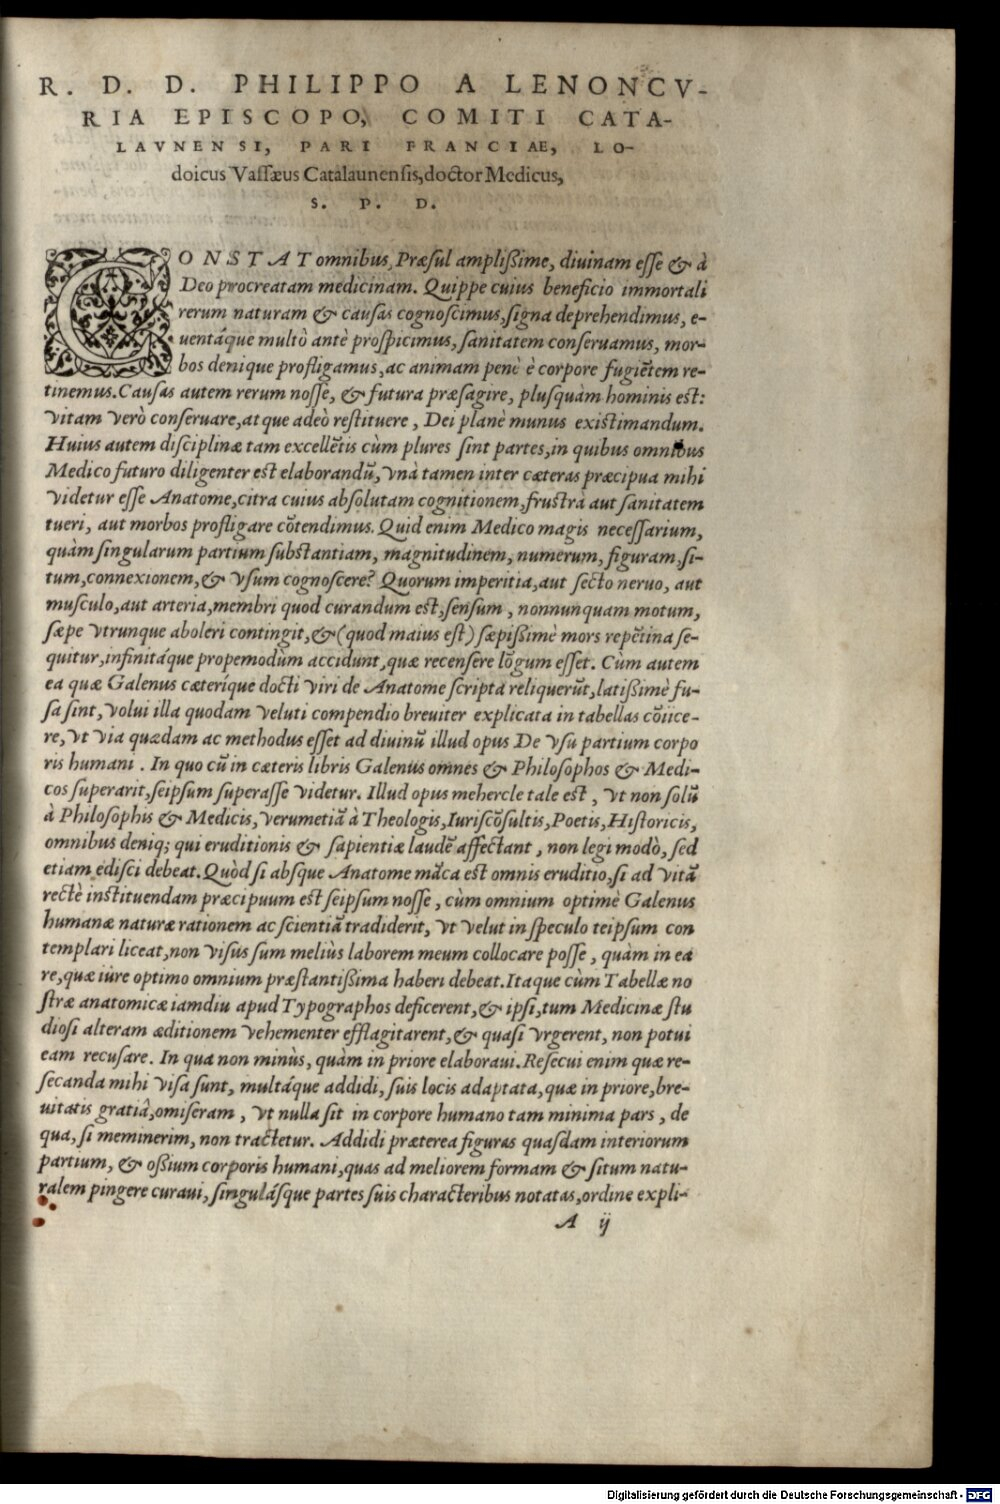 R. D. D. PHILIPPO A LENONCV-
RIA EPISCOPO, COMITI CATA-
LAVNENSI, PARI FRANCIAE, LO-
doicus Vaſſæus Catalaunenſis, doctor Medicus,
S. P. D.
CONSTAT omnibus, Præſul ampliſſime, diuinam eſſe & à
Deo procreatam medicinam. Quippe cuius beneficio immortali
rerum naturam & cauſas cognoſcimus, ſigna deprehendimus, e-
uentáque multò antè proſpicimus, ſanitatem conſeruamus, mor-
bos denique profligamus, ac animam penè è corpore fugiẽtem re-
tinemus. Cauſas autem rerum noſſe, & futura præſagire, pluſquàm hominis est:
vitam verò conſeruare, atque adeò reſtituere, Dei planè munus existimandum.
Huius autem disciplinæ tam excellẽtis cùm plures ſint partes, in quibus omnibus
Medico futuro diligenter est elaborandũ, vnà tamen inter cæteras præcipua mihi
videtur eſſe Anatome, citra cuius abſolutam cognitionem, fruſtrà aut ſanitatem
tueri, aut morbos profligare cõtendimus. Quid enim Medico magis neceſſarium,
quàm ſingularum partium ſubſtantiam, magnitudinem, numerum, figuram, ſi-
tum, connexionem, & vſum cognoſcere? Quorum imperitia, aut ſecto neruo, aut
muſculo, aut arteria, membri quod curandum est, ſenſum, nonnunquam motum,
ſæpe vtrunque aboleri contingit, & (quod maius est) ſæpiſſimè mors repẽtina ſe-
quitur, infinitáque propemodùm accidunt, quæ recenſere lõgum eſſet. Cùm autem
ea quæ Galenus cæteríque docti viri de Anatome ſcripta reliquerũt, latiſſimè fu-
ſa ſint, volui illa quodam veluti compendio breuiter explicata in tabellas cõiice-
re, vt via quædam ac methodus eſſet ad diuinũ illud opus De vſu partium corpo
ris humani. In quo cũ in cæteris libris Galenus omnes & Philoſophos & Medi-
cos ſuperarit, ſeipſum ſuperaſſe videtur. Illud opus mehercle tale est, vt non ſolũ
à Philoſophis & Medicis, verumetiã à Theologis, Iuriſcõſultis, Poetis, Hiſtoricis,
omnibus deniq; qui eruditionis & ſapientiæ laudẽ affectant, non legi modò, ſed
etiam ediſci debeat. Quòd ſi abſque Anatome mãca est omnis eruditio, ſi ad vitã
rectè inſtituendam præcipuum est ſeipſum noſſe, cùm omnium optimè Galenus
humanæ naturæ rationem ac ſcientiã tradiderit, vt velut in ſpeculo teipſum con
templari liceat, non viſus ſum meliùs laborem meum collocare poſſe, quàm in ea
re, quæ iùre optimo omnium præſtantiſſima haberi debeat. Itaque cùm Tabellæ no
ſtræ anatomicæ iamdiu apud Typographos deficerent, & ipſi, tum Medicinæ ſtu
dioſi alteram æditionem vehementer efflagitarent, & quaſi vrgerent, non potui
eam recuſare. In qua non minùs, quàm in priore elaboraui. Reſecui enim quæ re-
ſecanda mihi viſa ſunt, multáque addidi, ſuis locis adaptata, quæ in priore, bre-
uitatis gratiâ, omiſeram, vt nulla ſit in corpore humano tam minima pars, de
qua, ſi meminerim, non tractetur. Addidi præterea figuras quaſdam interiorum
partium, & oſſium corporis humani, quas ad meliorem formam & ſitum natu-
ralem pingere curaui, ſingulásque partes ſuis characteribus notatas, ordine expli-
A ij
Digitalisierung gefördert durch die Deutsche Forschungsgemeinschaft - DFG